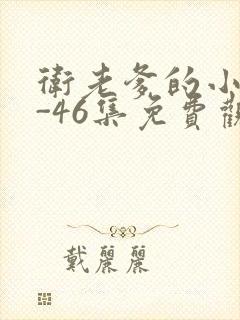 衛老爹的小
-46集免費觀
戴麗麗